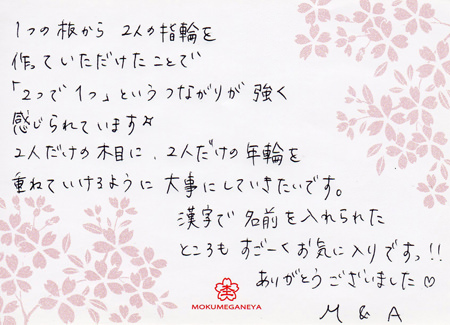 1つの板から 2人の指輪を
作っていただけたことで
「2つで1つ」というつながりが 強く
感じられています☆
2人だけの木目に、2人だけの年輪を
重ねていけるように 大事にしていきたいです。
漢字で 名前を入れられた
ところも すごーくお気に入りですっ!!
ありがとうございました♡
MOKUMEGANEYA
M & A